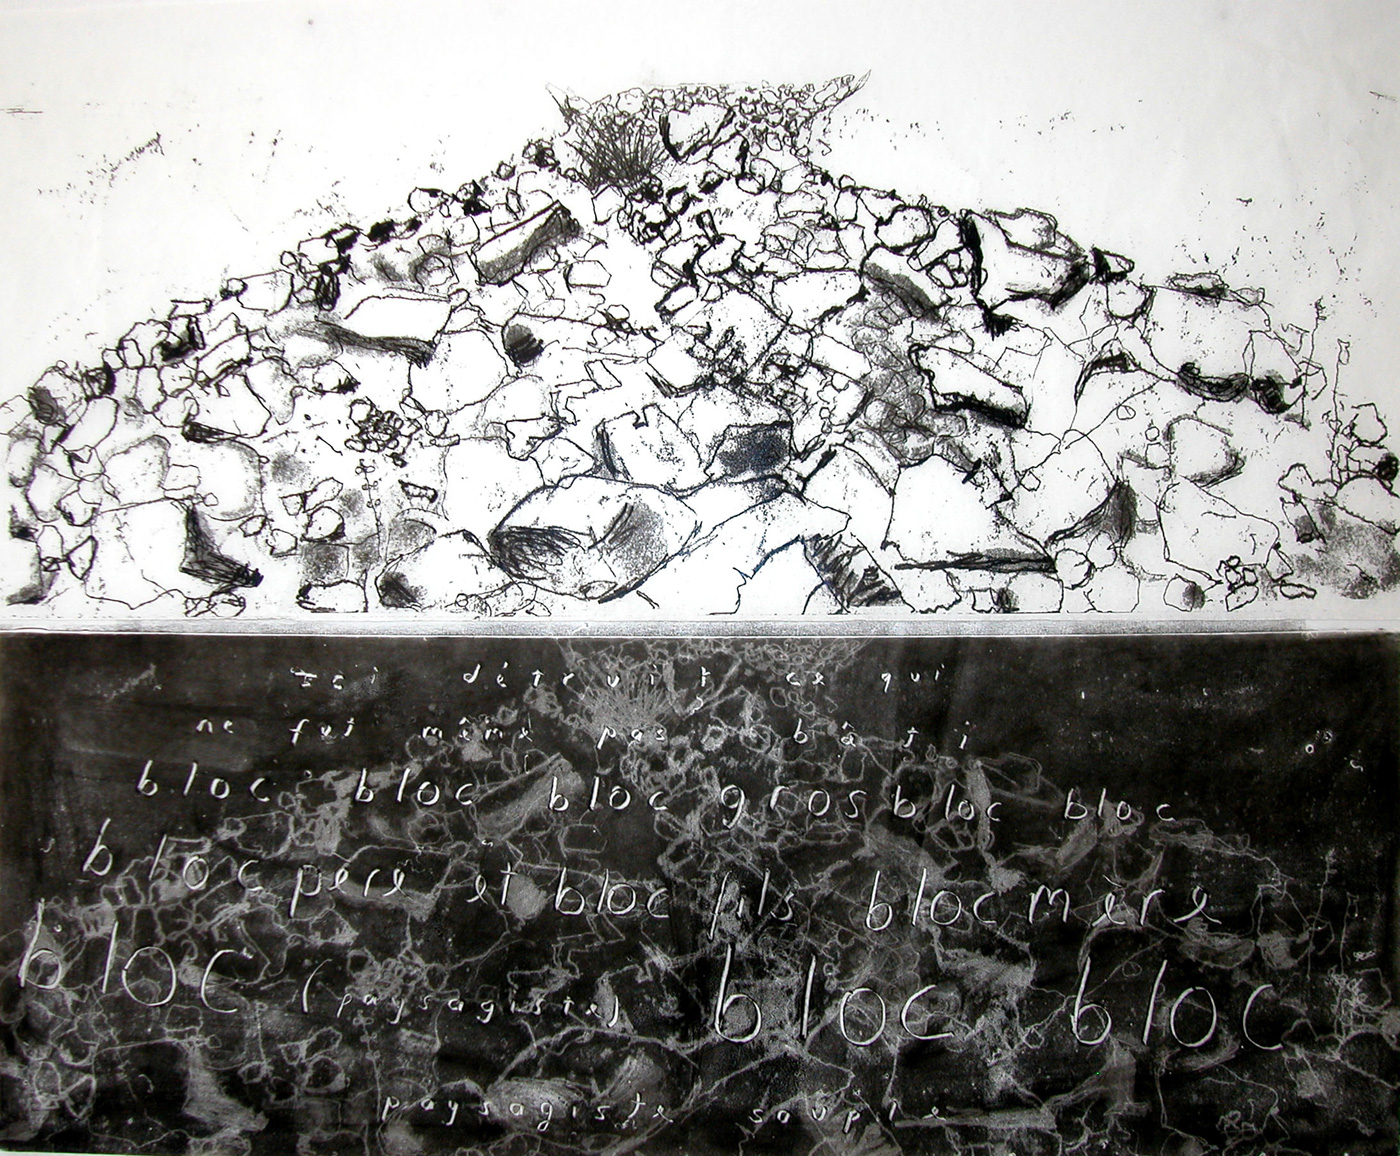 Ici détruit ce qui
ne fut même pas bâti
bloc bloc bloc gros bloc bloc
bloc père et bloc fils bloc mère
bloc (paysagiste) bloc bloc
paysagiste souple